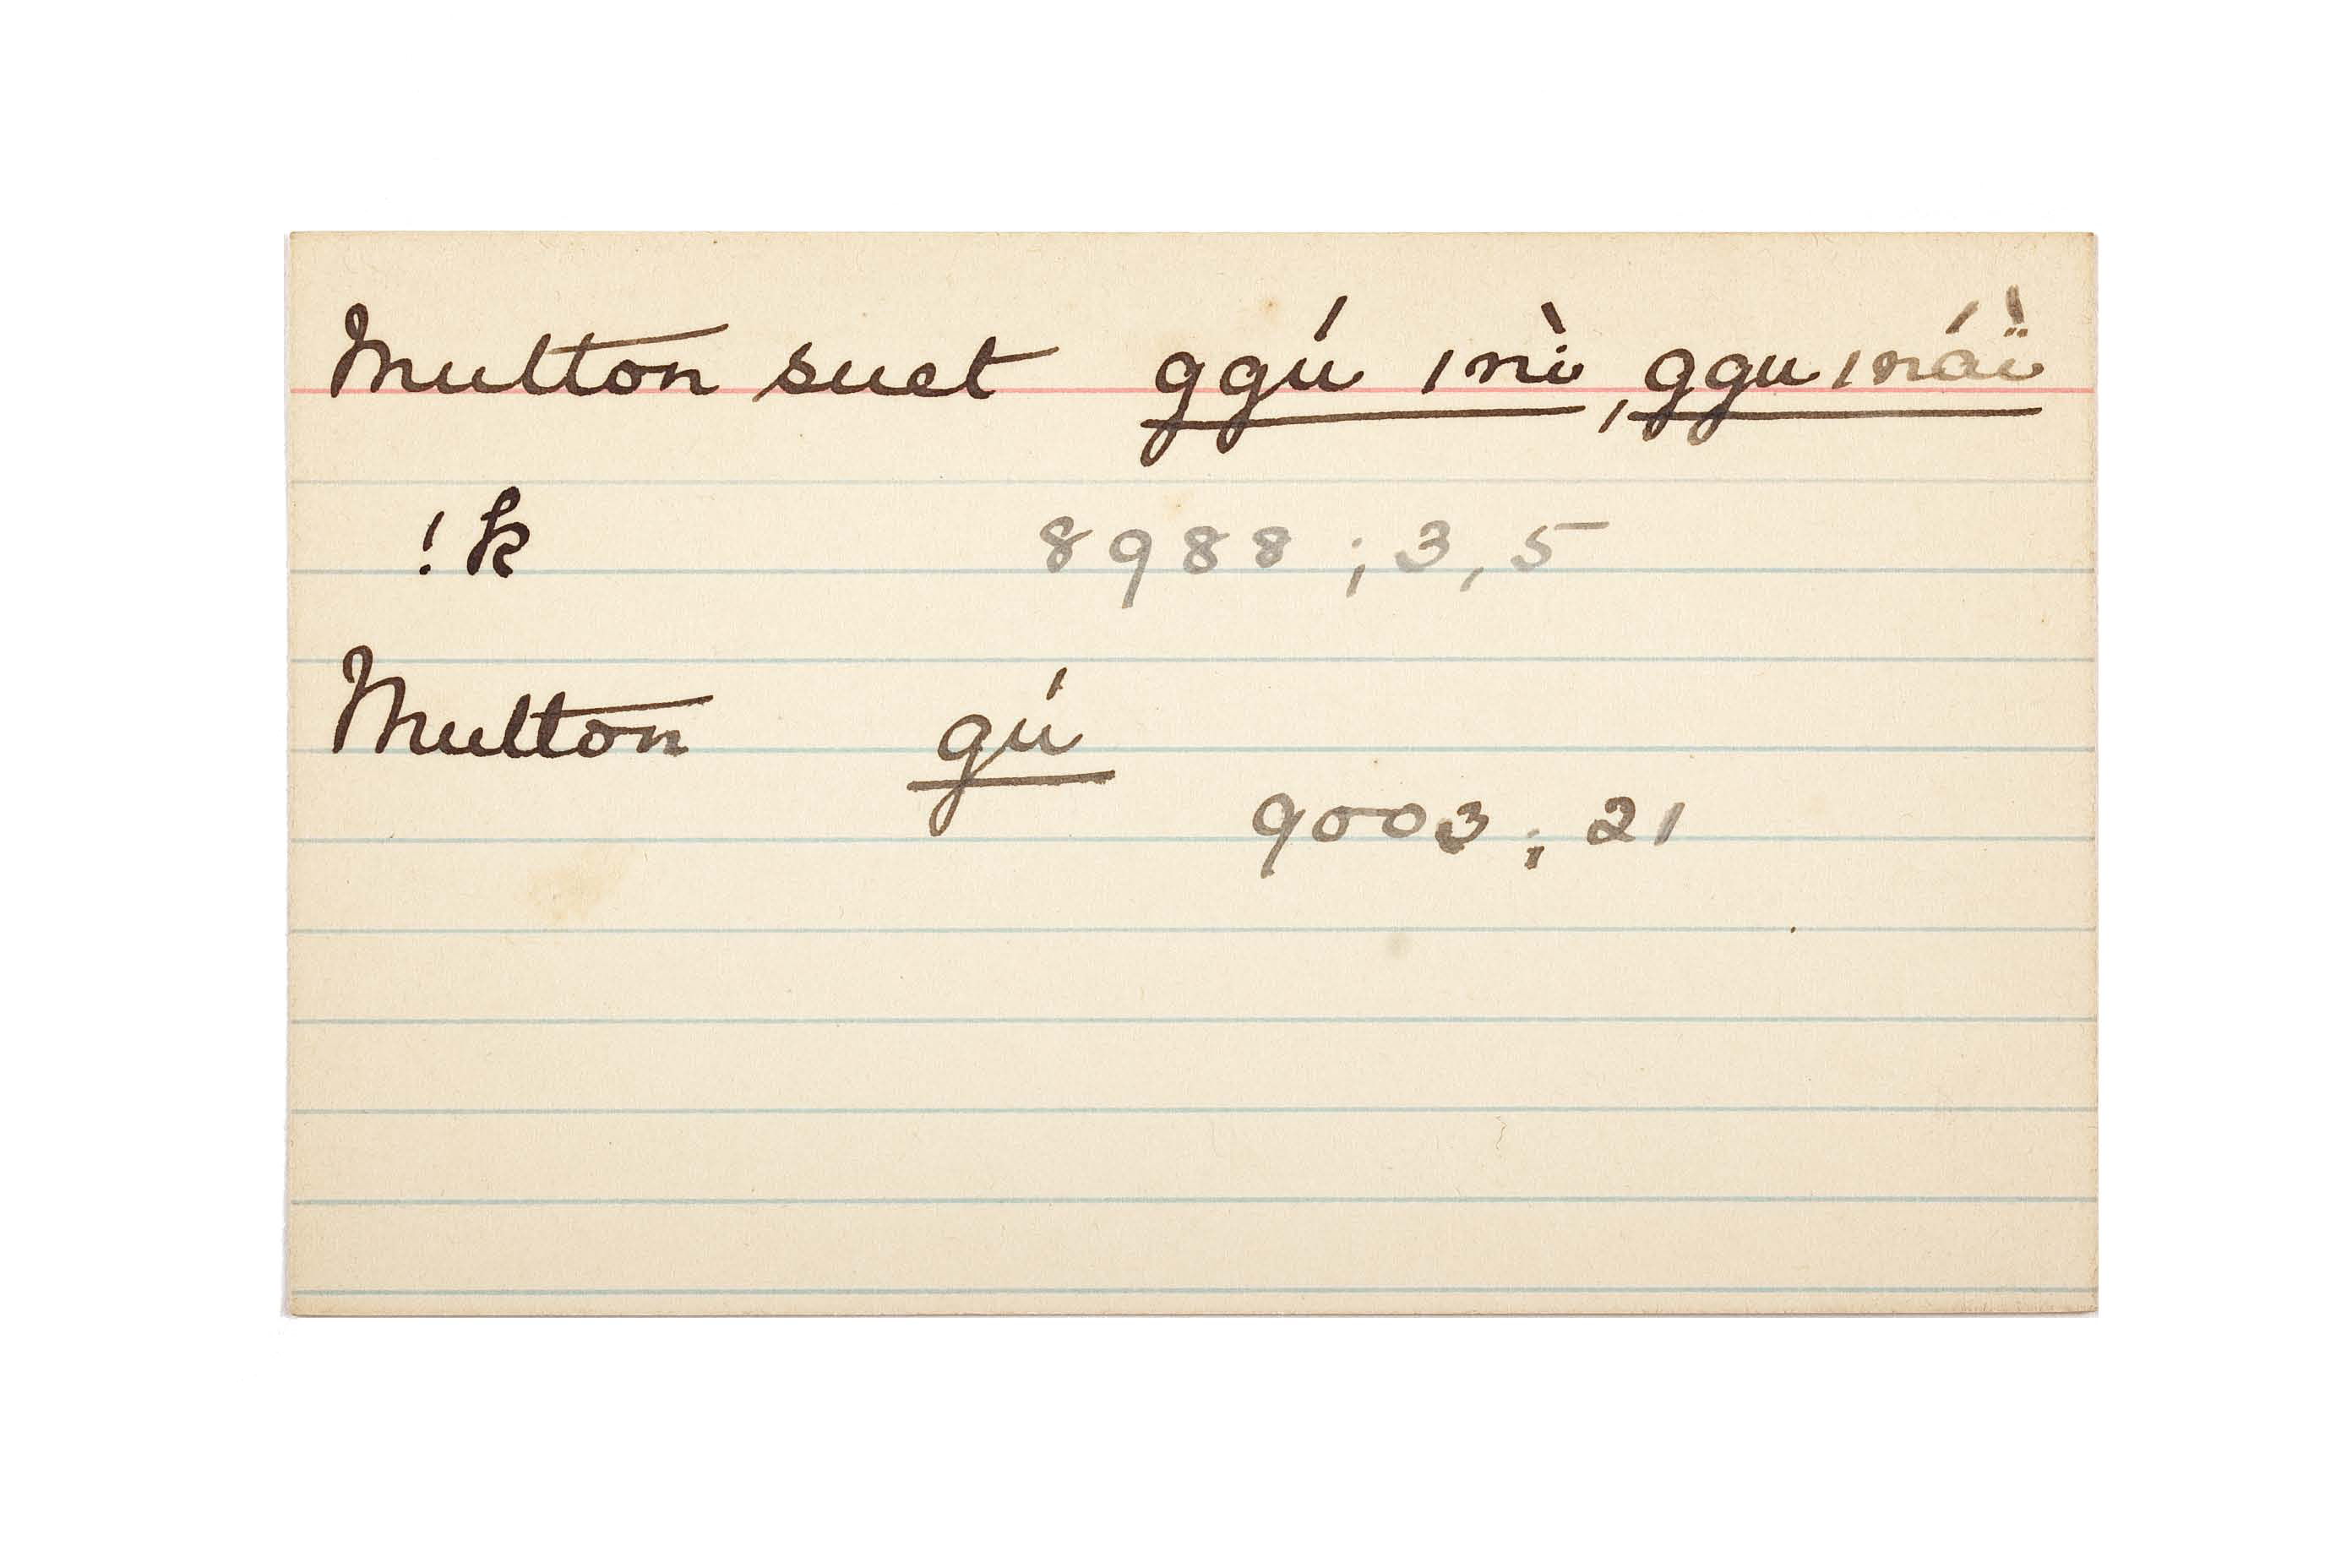 Mutton suet ggú ǀnï̀, ggu ǀnáï̀
!k 8988; 3, 5
Mutton gú
9003; 21